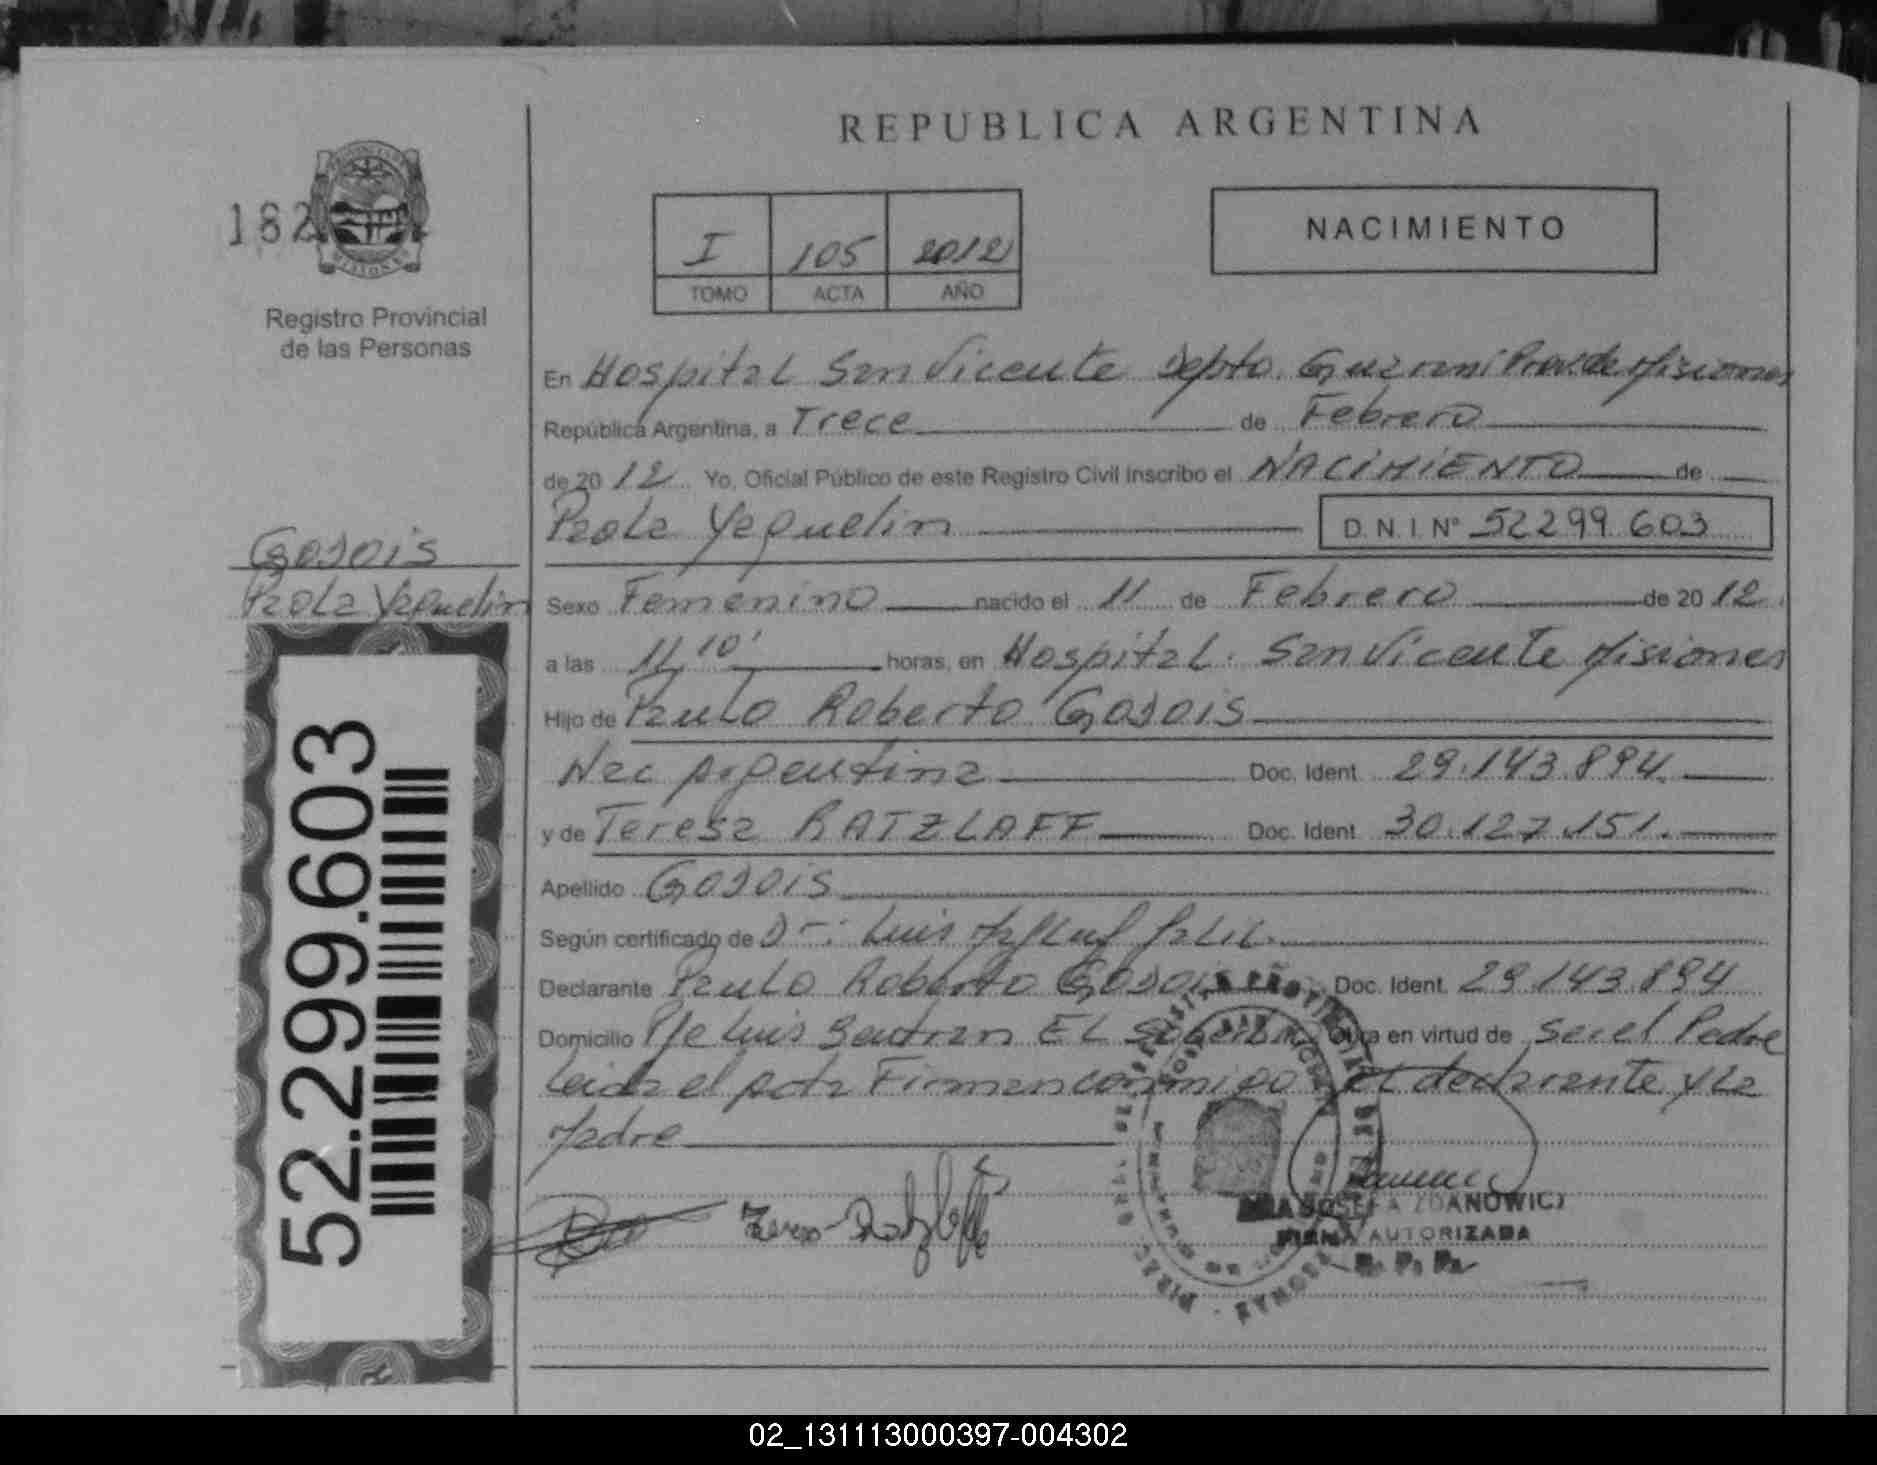 REPUBLICA ARGENTINA
182
Registro Provincial
de las Personas
I 105 2012
TOMO ACTA AÑO
NACIMIENTO
En Hospital San Vicente Depto. Guarani Prov. de Misiones
República Argentina, a Trece de Febrero
de 2012 Yo, Oficial Público de este Registro Civil Inscribo el NACIMIENTO de
Paola Yaquelin D.N.I. N° 52299.603
Godois
Paola Yaquelin
Sexo Femenino nacido el 11 de Febrero de 2012
a las 11,10' horas, en Hospital San Vicente Misiones
Hijo de Paulo Roberto Godois
Nac Argentina Doc. Ident. 29.143.894
y de Teresa RATZLAFF Doc. Ident. 30.127.151.
Apellido Godois
Según certificado de Dr: Luis
Declarante Paulo Roberto Godois Doc. Ident. 29.143.894
Domicilio Pje Luis Beltran EL en virtud de Ser el Padre
Leida el Acta Firman conmigo el declarante y la
Madre
52.299.603
ZDANOWICZ
FIRMA AUTORIZADA
R. P. P.
02_131113000397-004302